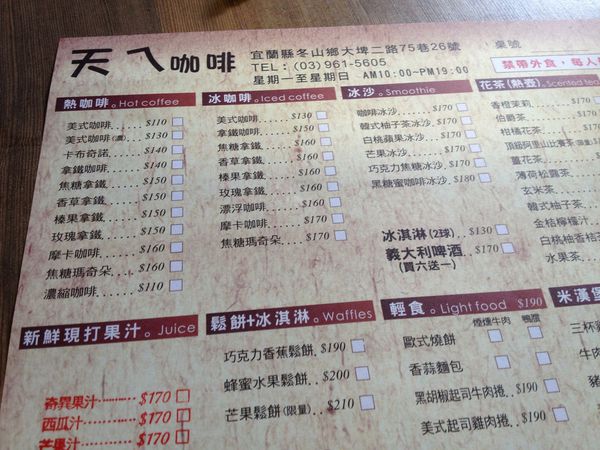 天ㄟ咖啡
宜蘭縣冬山鄉大埤二路75巷26號
TEL：(03)961-5605
星期一至星期日 AM10:00~PM19:00
桌號
禁帶外食，每人
熱咖啡。Hot coffee
美式咖啡......$110
美式咖啡(濃)..$130
卡布奇諾......$140
拿鐵咖啡......$140
焦糖拿鐵......$150
香草拿鐵......$150
榛果拿鐵......$150
玫瑰拿鐵......$150
摩卡咖啡......$160
焦糖瑪奇朵..$160
濃縮咖啡......$110
冰咖啡。Iced coffee
美式咖啡......$130
拿鐵咖啡......$150
焦糖拿鐵......$160
香草拿鐵......$160
榛果拿鐵......$160
玫瑰拿鐵......$160
漂浮咖啡......$160
摩卡咖啡......$170
焦糖瑪奇朵..$170
冰沙。Smoothie
咖啡冰沙........$170
韓式柚子茶冰沙..$170
白桃蘋果冰沙..$170
芒果冰沙........$170
巧克力焦糖冰沙..$170
黑糖蜜咖啡冰沙..$180
冰淇淋(2球)...$130
義大利啤酒..$170
(買六送一)
花茶(熱壺)。Scented tea
香榧茉莉
伯爵茶
柑橘花茶
頂級阿里山比賽茶
薑花茶
薄荷松露茶
玄米茶
韓式柚子茶
金桔檸檬汁
白桃柚香桔茶
水果茶
新鮮現打果汁。Juice
奇異果汁.........$170
西瓜汁.........$170
芒果汁.........$170
鬆餅+冰淇淋。Waffles
巧克力香蕉鬆餅..$190
蜂蜜水果鬆餅..$200
芒果鬆餅(限量)..$210
輕食。Light food $190
煙燻牛肉 鴨賞
歐式燒餅
香蒜麵包
黑胡椒起司牛肉捲..$190
美式起司雞肉捲..$190
米漢堡
三杯
牛肉
豬